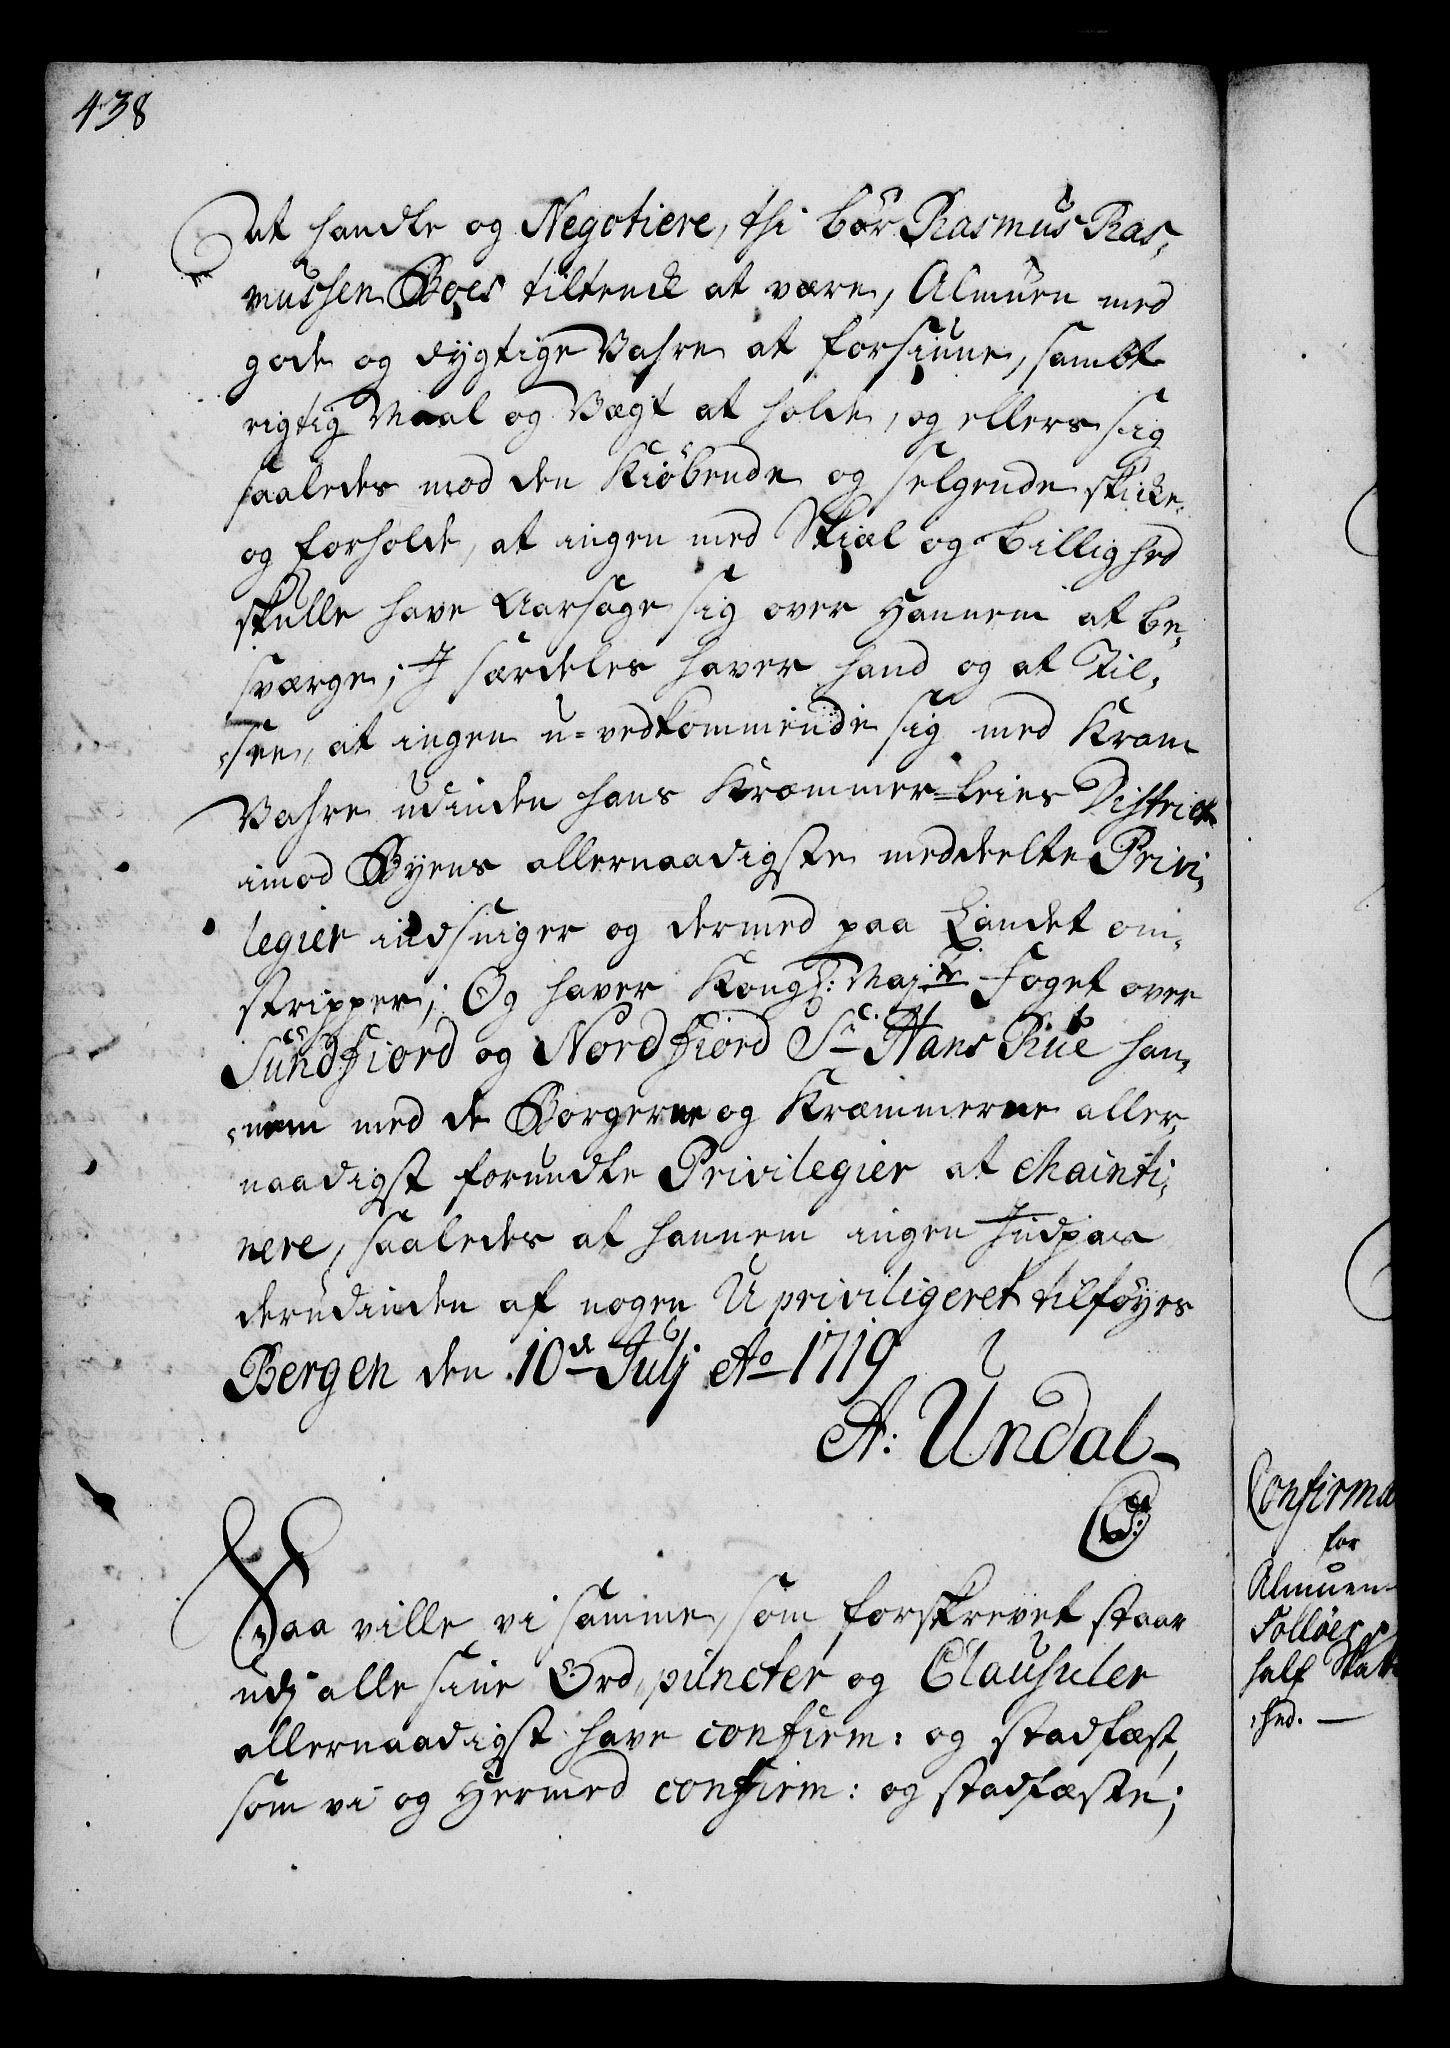 438
At handle og Negotiere, thi bør Rasmus Ras,
mussen Boes tiltenckt at være, Almuen med
gode og dygtige Vahre at forsiune, sambt
rigtig Maal og Vægt at holde, og ellers sig
saaledes mod den Kiøbende og selgende skicke
og forholde, at ingen med Skiæl og billighed
skulle have Aarsage sig over hannem at be,
sværge; J særdeles haver hand og at Til,
,see, at ingen u-vedkommende sig med Kram
Vahre udinden hans Kræmmer-leies District
imod Byens allernaadigste meddeelte Privi,
legier indsniger og dermed paa Landet om,
stripper; Og haver Kongl: Maj:ts Foget over
Sundfiord og Nordfiord Sr Hans Rue han,
,nem med de Borgerne og Kræmmerne aller,
naadigst forundte Privilegier at Mainti,
nere, saaledes at hannem ingen Indpas
derudinden af nogen Upriviligeret tilføyes
Bergen den 10de Julj Ao 1719
A: Undal
Saa ville vi samme, som forskrevet staar
udj alle sine Ord, puncter og Clausuler
allernaadigst have confirm: og stadfæst,
som vi og Hermed confirm: og stadfæste;
Confirma
for
Almuen
half Skatte
,hed.